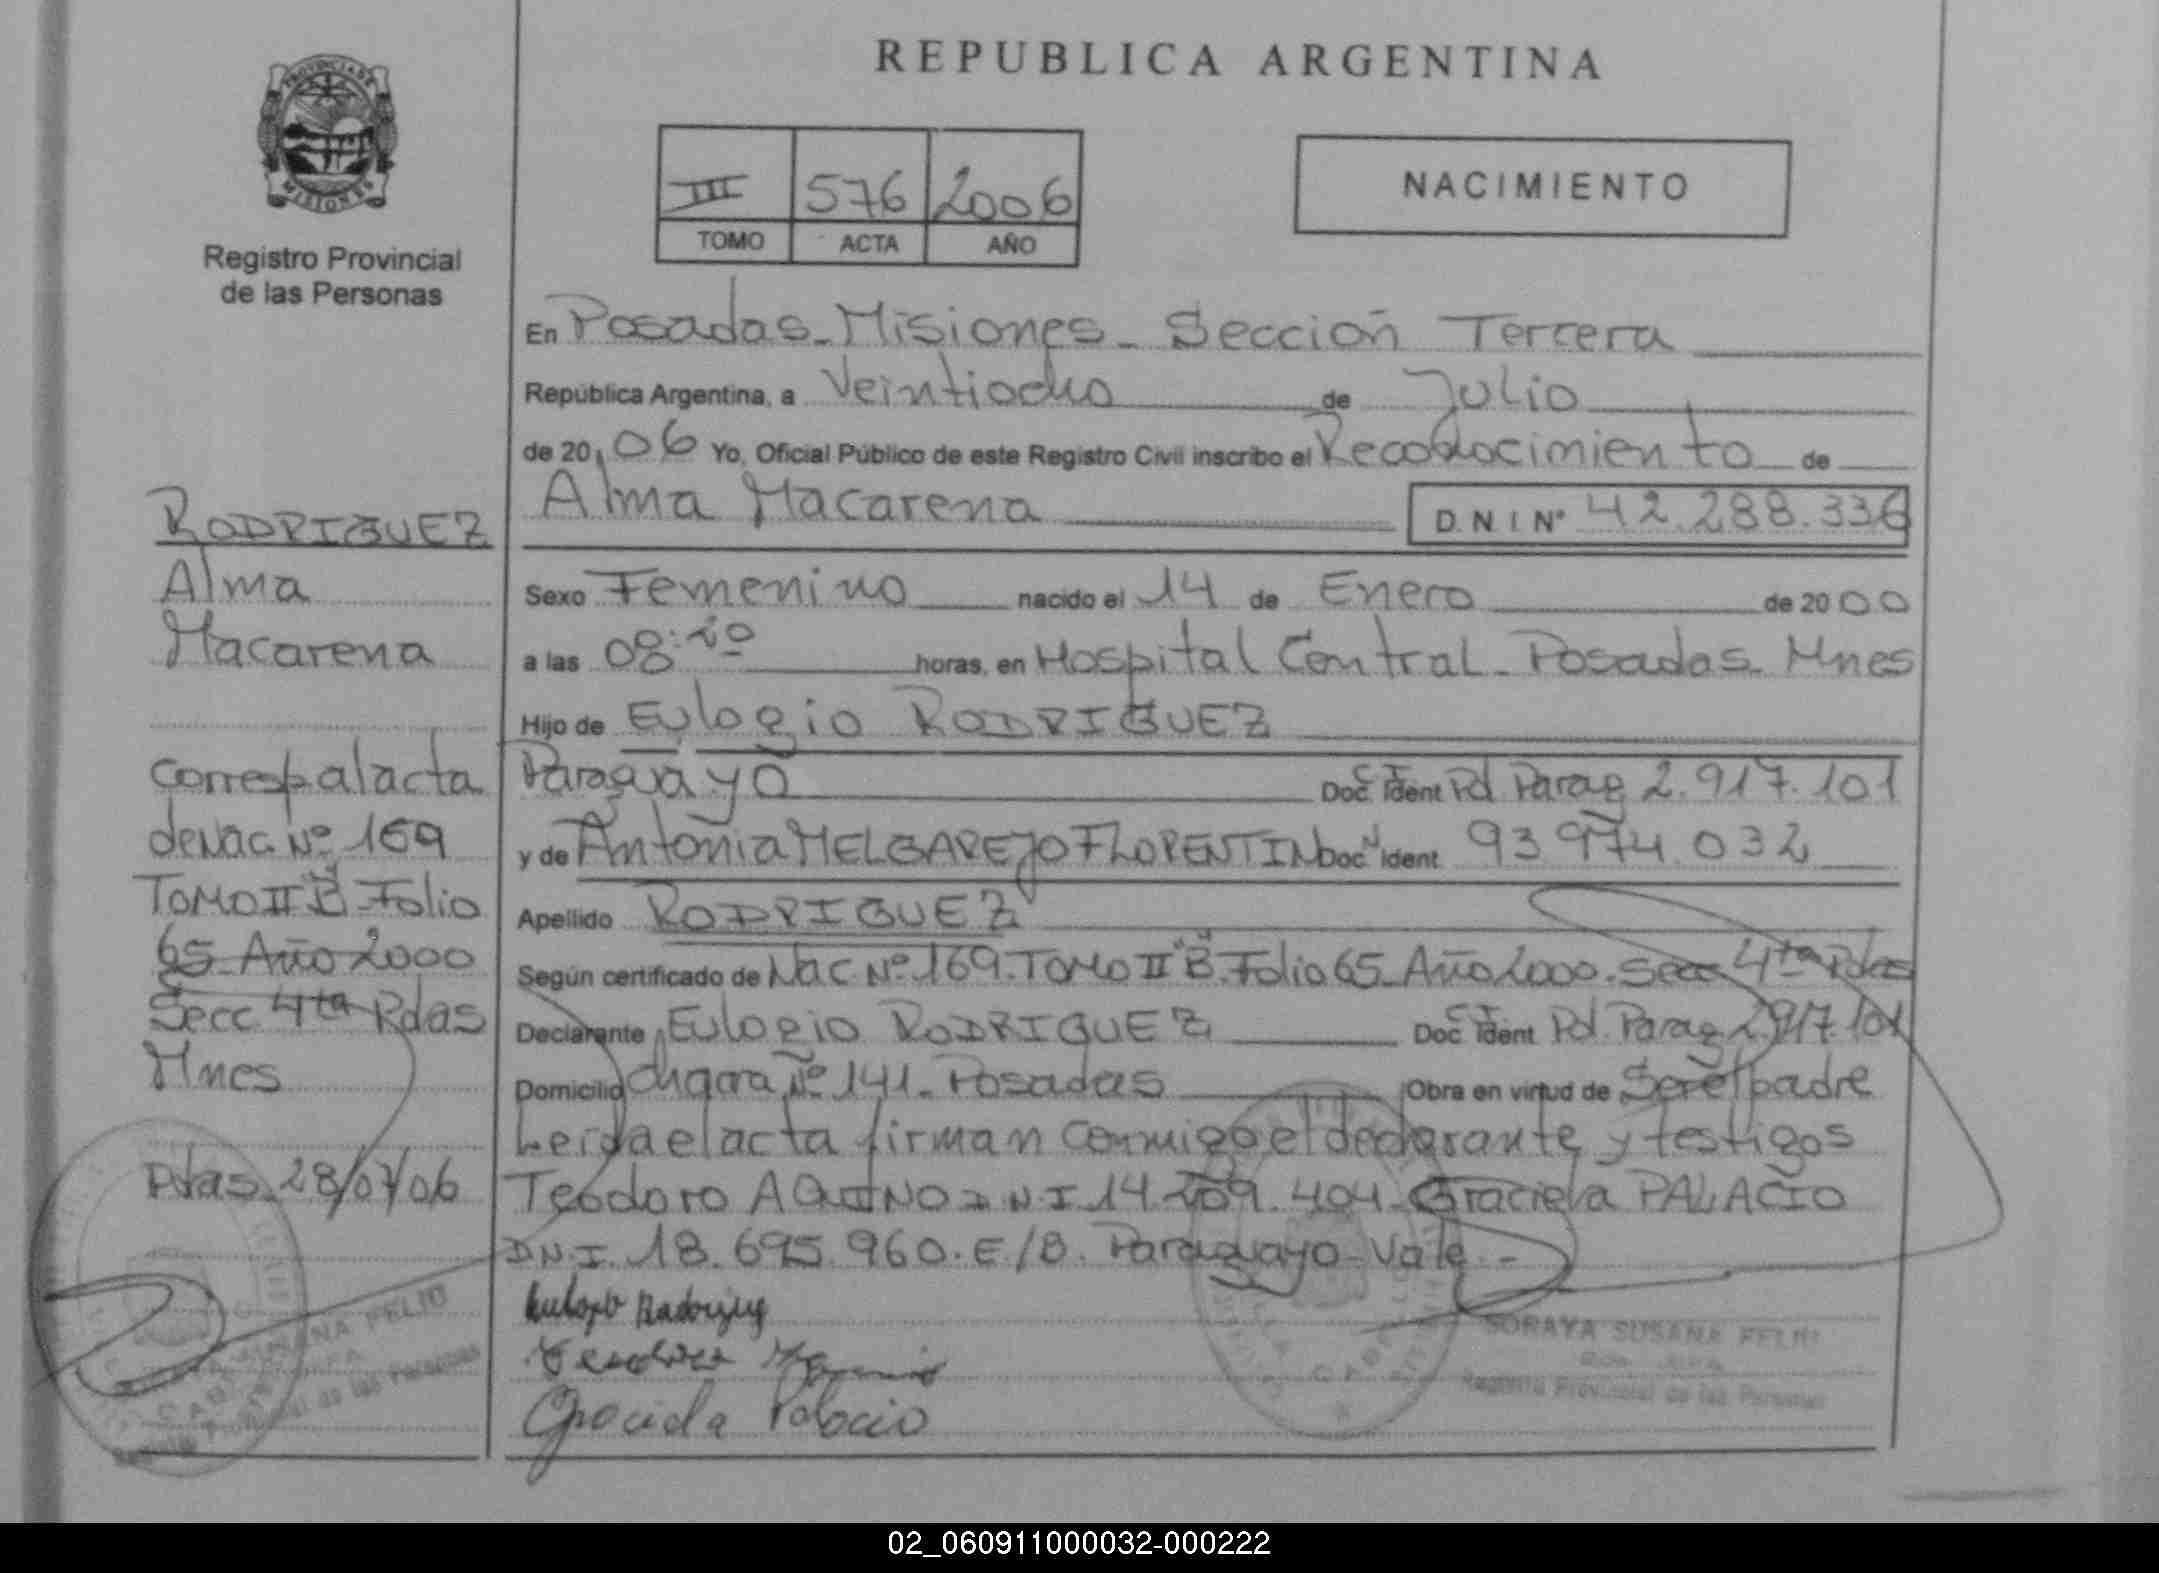 REPUBLICA ARGENTINA
PROVINCIA DE
MISIONES
Registro Provincial
de las Personas
III 576 2006
TOMO ACTA AÑO
NACIMIENTO
En Posadas - Misiones - Sección Tercera
República Argentina, a Veintiocho de Julio
de 20 06 Yo, Oficial Público de este Registro Civil inscribo el Reconocimiento de
Alma Macarena D.N.I. Nº 42.288.336
Sexo Femenino nacido el 14 de Enero de 20 00
a las 08:20 horas, en Hospital Central - Posadas - Mnes
Hijo de Eulogio RODRIGUEZ
Paraguayo Doc. Ident C I Pol Parag 2.917.101
y de Antonia MELGAREJO FLORENTIN Doc. Ident 93 974.032
Apellido RODRIGUEZ
Según certificado de Nac Nº 169. TOMO II "B". Folio 65 - Año 2000. Secc 4ta Pdas
Declarante Eulogio RODRIGUEZ Doc. Ident C I Pol. Parag 2.917.101
Domicilio Chacra Nº 141 - Posadas Obra en virtud de Ser el padre
Leida el acta firman conmigo el declarante y testigos
Teodoro AQUINO D.N.I 14.209.404 - Graciela PALACIO
D.N.I. 18.695.960. E/B. Paraguayo - Vale. -
Eulogio Rodriguez
Graciela Palacio
SORAYA SUSANA FELIU
Registro Provincial de las Personas
RODRIGUEZ
Alma
Macarena
Corresp al acta
de Nac. Nº 169
TOMO II "B" - Folio
65 - Año 2000
Secc 4ta Pdas
Mnes
Pdas. 28/07/06
SUSANA FELIU
Provincial de las Personas
02_060911000032-000222